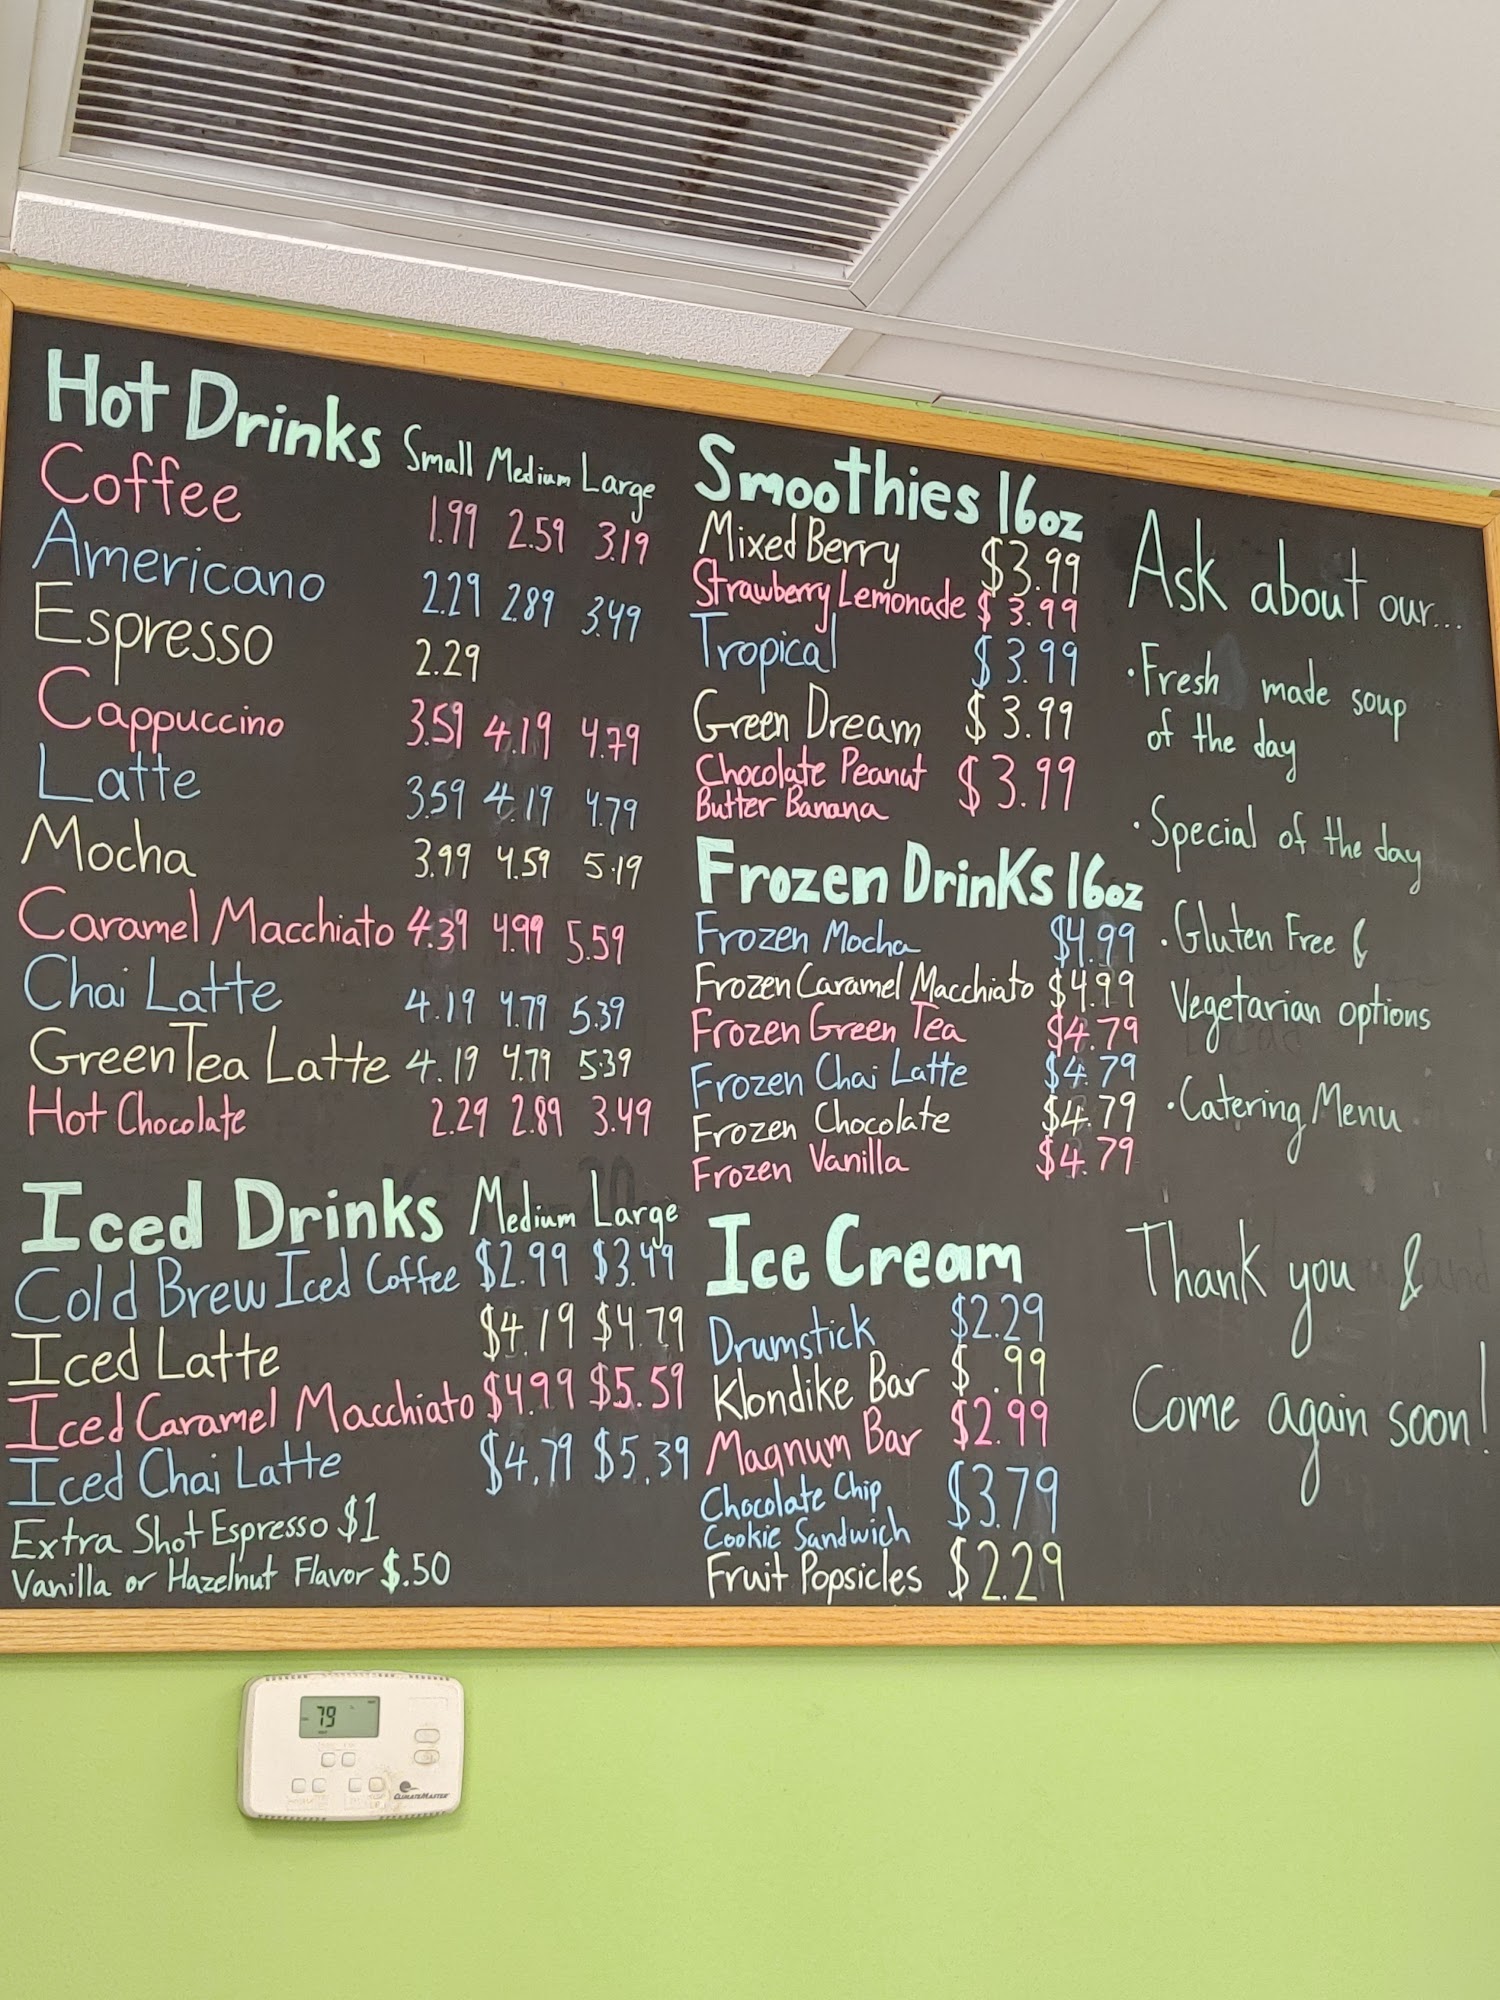 Hot Drinks Small Medium Large
Coffee 1.99 2.59 3.19
Americano 2.29 2.89 3.49
Espresso 2.29
Cappuccino 3.59 4.19 4.79
Latte 3.59 4.19 4.79
Mocha 3.99 4.59 5.19
Caramel Macchiato 4.39 4.99 5.59
Chai Latte 4.19 4.79 5.39
Green Tea Latte 4.19 4.79 5.39
Hot Chocolate 2.29 2.89 3.49
Iced Drinks Medium Large
Cold Brew Iced Coffee $2.99 $3.49
Iced Latte $4.19 $4.79
Iced Caramel Macchiato $4.99 $5.59
Iced Chai Latte $4.79 $5.39
Extra Shot Espresso $1
Vanilla or Hazelnut Flavor $.50
Smoothies 16oz
Mixed Berry $3.99
Strawberry Lemonade $3.99
Tropical $3.99
Green Dream $3.99
Chocolate Peanut $3.99
Butter Banana
Frozen Drinks 16oz
Frozen Mocha $4.99
Frozen Caramel Macchiato $4.99
Frozen Green Tea $4.79
Frozen Chai Latte $4.79
Frozen Chocolate $4.79
Frozen Vanilla $4.79
Ice Cream
Drumstick $2.29
Klondike Bar $.99
Magnum Bar $2.99
Chocolate Chip $3.79
Cookie Sandwich
Fruit Popsicles $2.29
Ask about our...
• Fresh made soup
of the day
• Special of the day
• Gluten Free &
Vegetarian options
• Catering Menu
Thank you &
Come again soon!
79
ClimateMaster